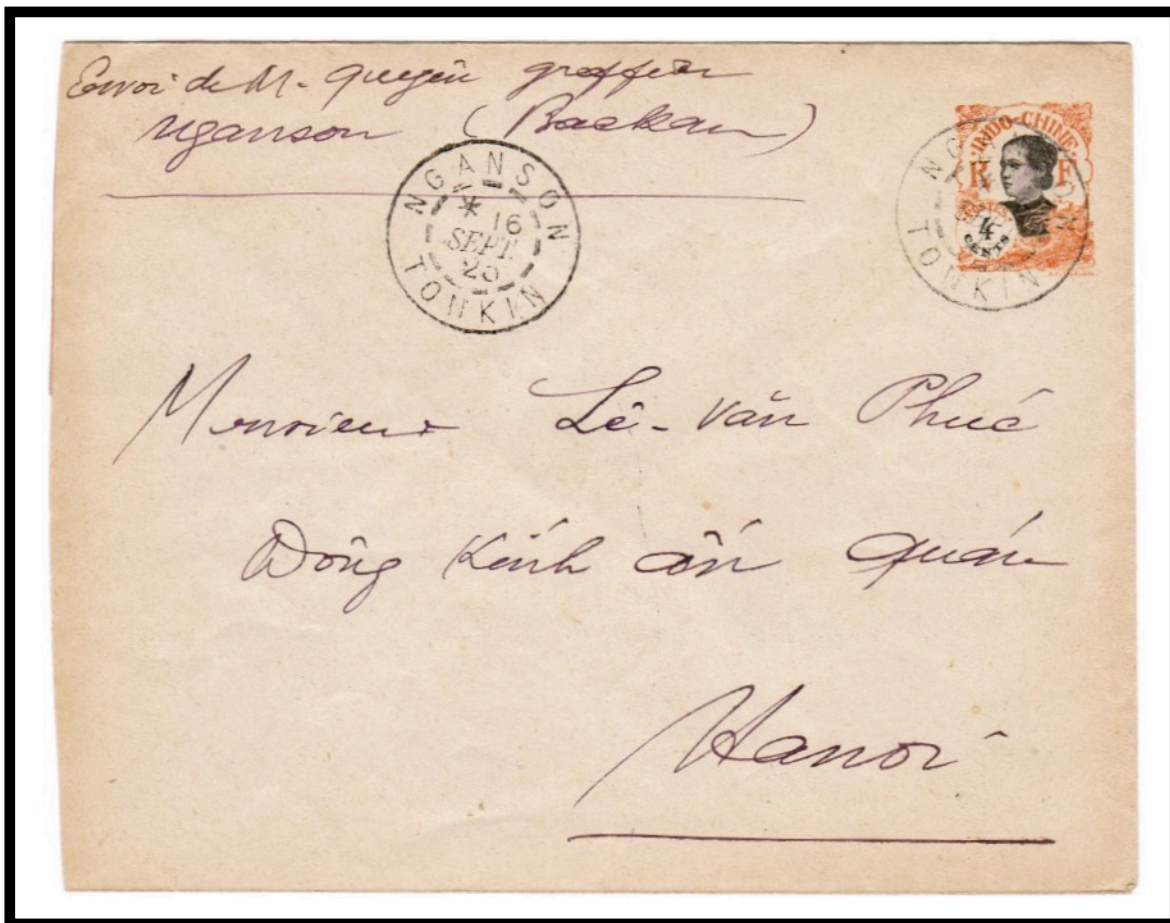 Envoi de M. Quyên greffier
Nganson (Backan)
NGANSON
* 16
SEPT.
TONKIN
INDO-CHINE
R F
4
CENTS
NGANSON
TONKIN
Monsieur Lê-Văn Phúc
Đông Kinh ấn quán
Hanoi